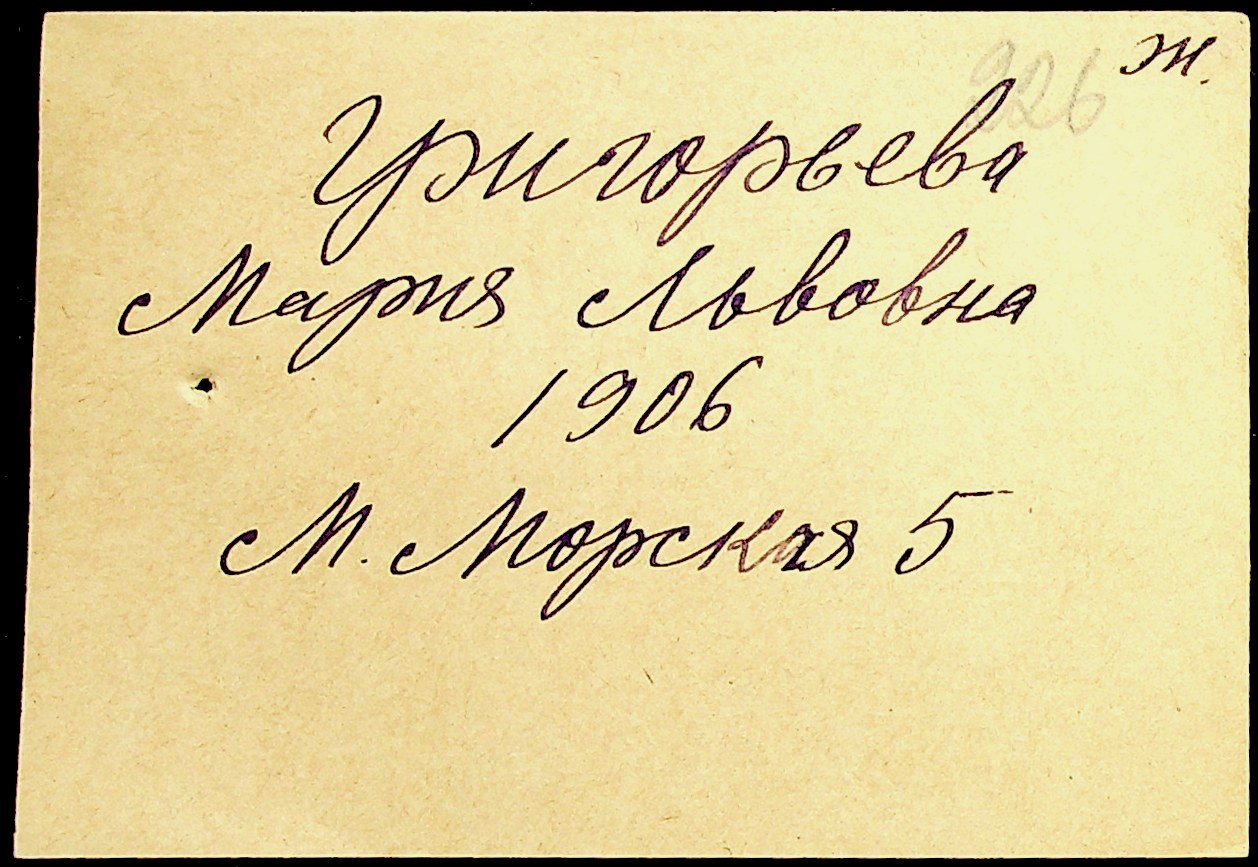 ж.
926
Григорьева
Мария Львовна
1906
М. Морская 5